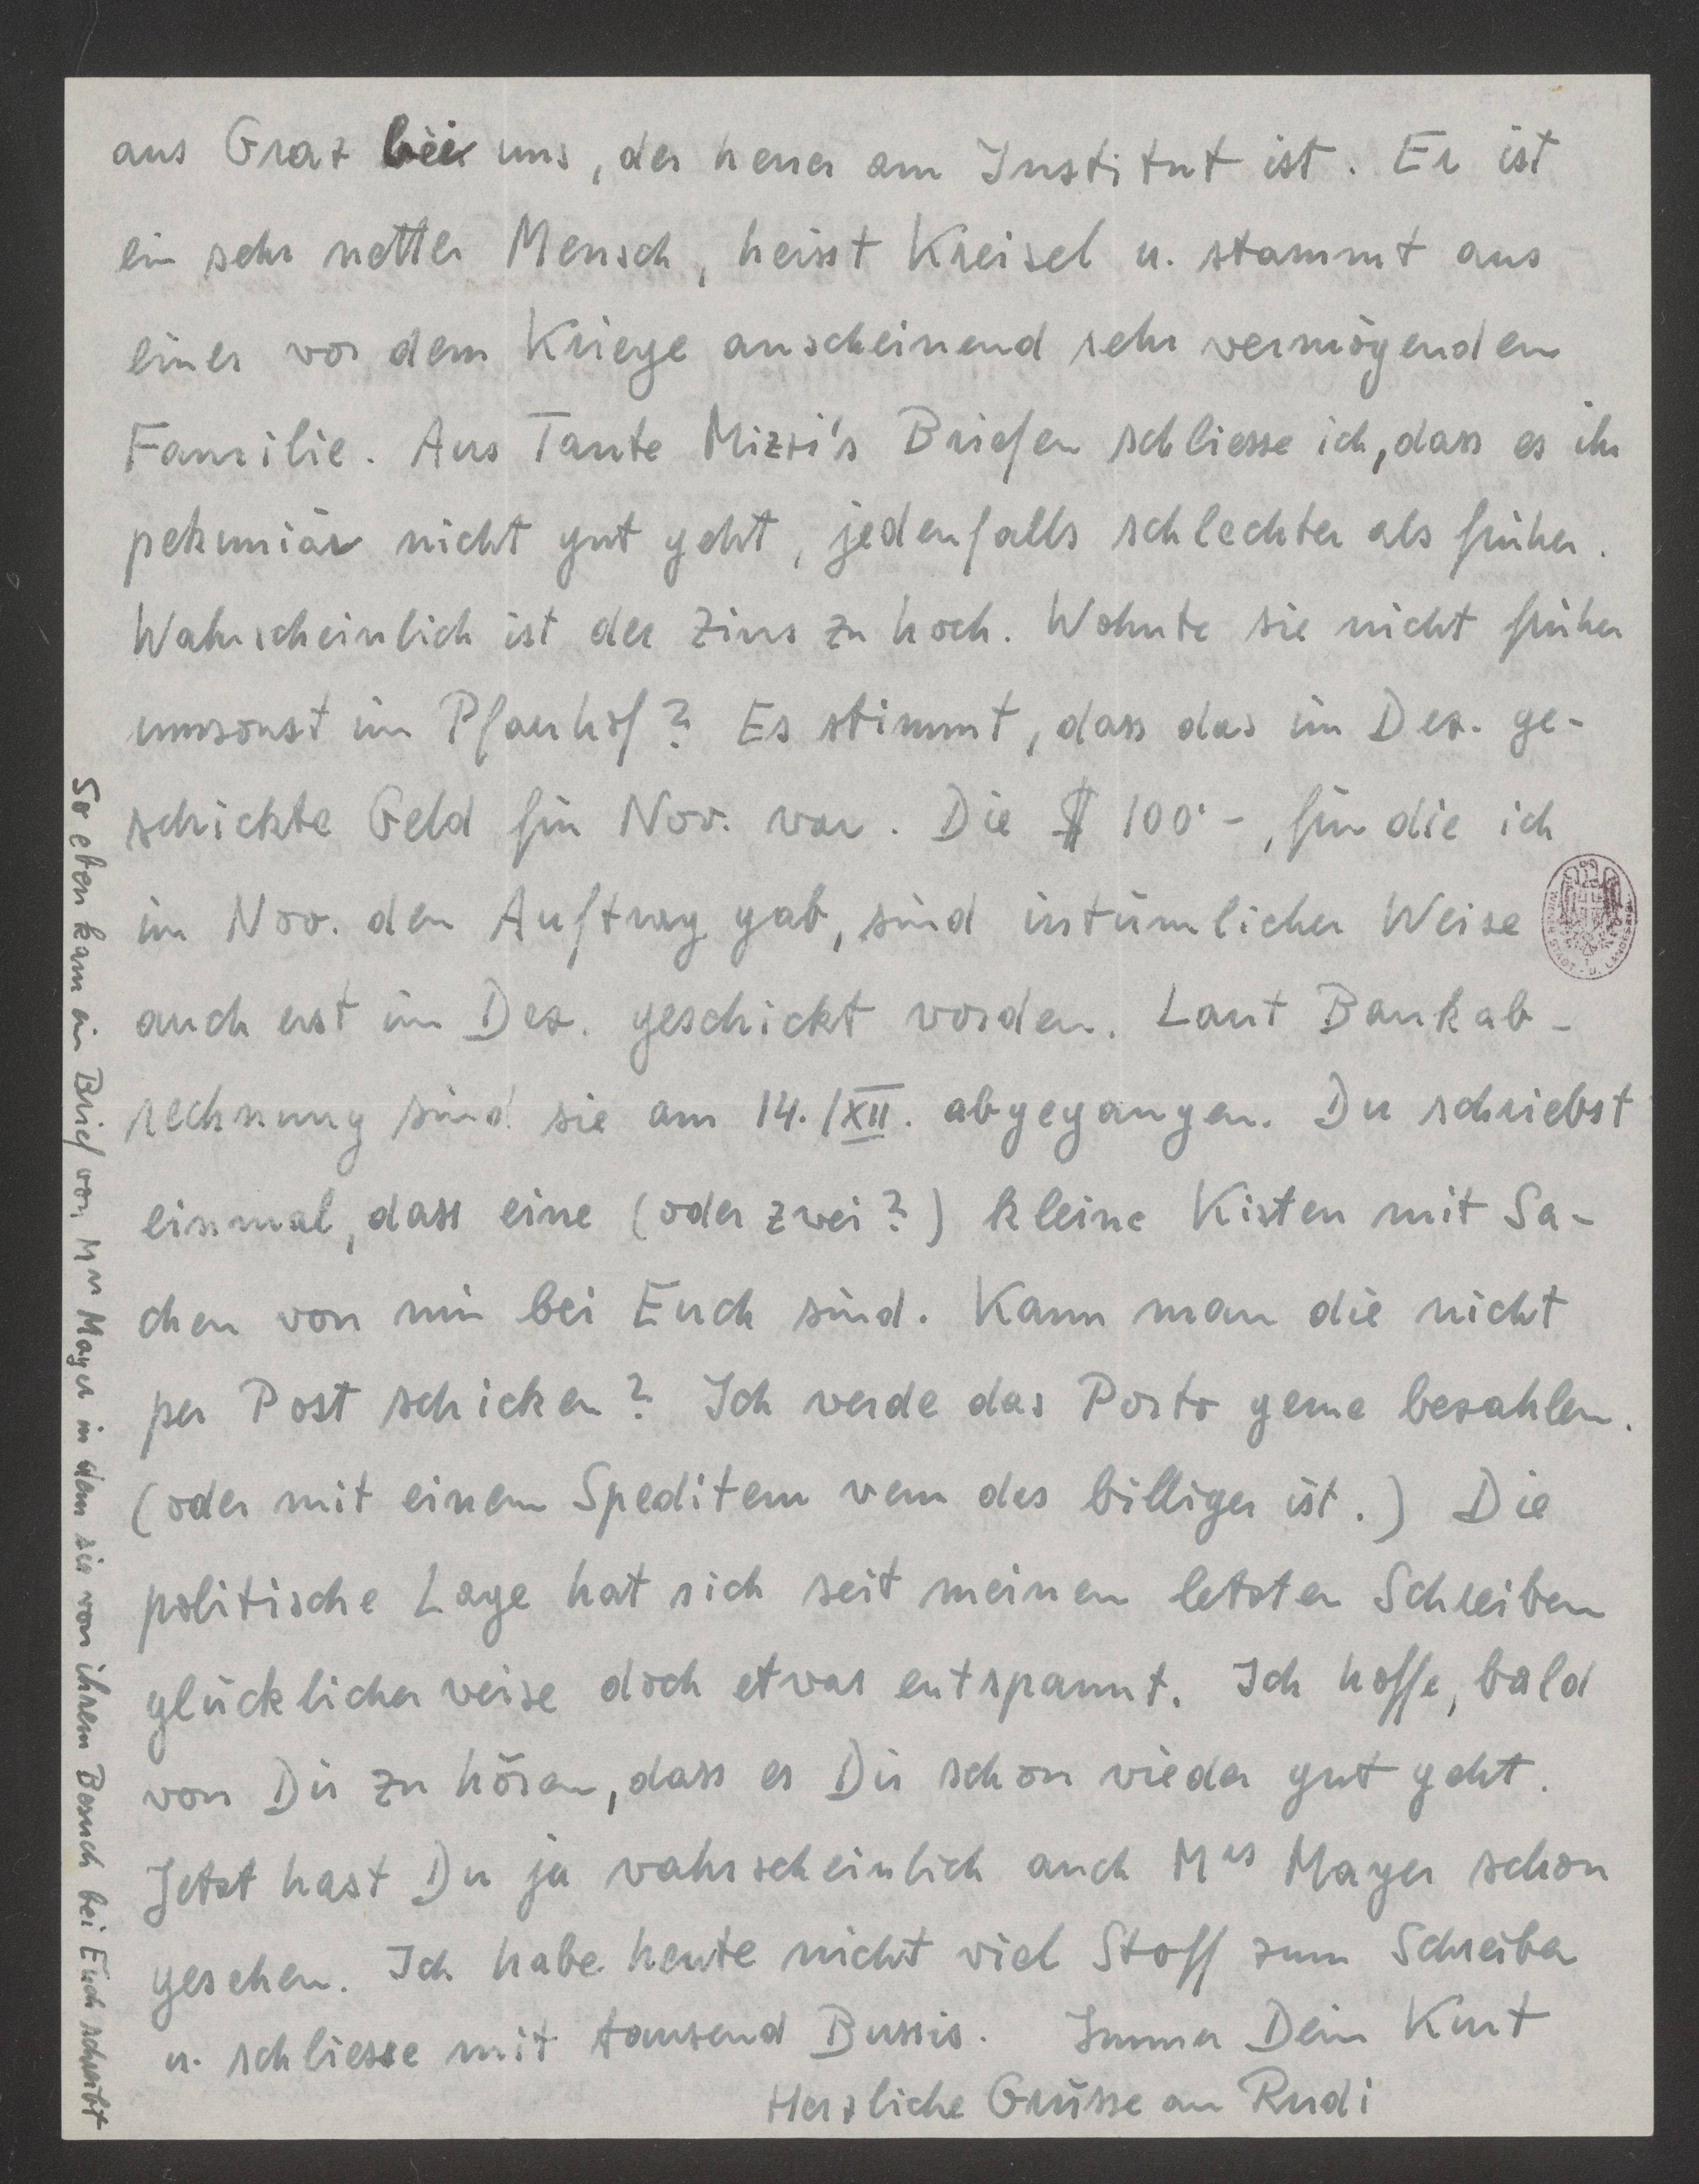 aus Graz bei uns, der heuer am Institut ist. Er ist
ein sehr netter Mensch, heisst Kreisel u. stammt aus
einer vor dem Kriege anscheinend sehr vermögenden
Familie. Aus Tante Mizzi's Briefen schliesse ich, dass es ihr
pekuniär nicht gut geht, jedenfalls schlechter als früher.
Wahrscheinlich ist der Zins zu hoch. Wohnte sie nicht früher
umsonst im Pfarrhof? Es stimmt, dass das im Dez. ge-
schickte Geld für Nov. war. Die $ 100·-, für die ich
im Nov. den Auftrag gab, sind irrtümlicher Weise
auch erst im Dez. geschickt worden. Laut Bankab-
rechnung sind sie am 14./XII. abgegangen. Du schriebst
einmal, dass eine (oder zwei?) kleine Kisten mit Sa-
chen von mir bei Euch sind. Kann man die nicht
per Post schicken? Ich werde das Porto gerne bezahlen.
(oder mit einem Spediteur wenn das billiger ist.) Die
politische Lage hat sich seit meinem letzten Schreiben
glücklicherweise doch etwas entspannt. Ich hoffe, bald
von Dir zu hören, dass es Dir schon wieder gut geht.
Jetzt hast Du ja wahrscheinlich auch Mrs Mayer schon
gesehen. Ich habe heute nicht viel Stoff zum Schreiben
u. schliesse mit tausend Bussis. Immer Dein Kurt
Herzliche Grüsse an Rudi
So eben kam ein Brief von Mrs Mayer in dem sie von ihrem Besuch bei Euch schreibt